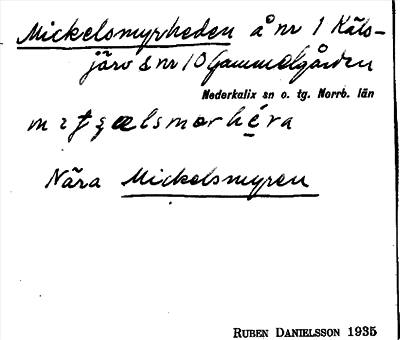 Mickelsmyrheden å nr 1 Käls-
järv & nr 10 Gammelgården
Nederkalix sn o. tg. Norrb. län
Nära Mickelsmyren
RUBEN DANIELSSON 1935